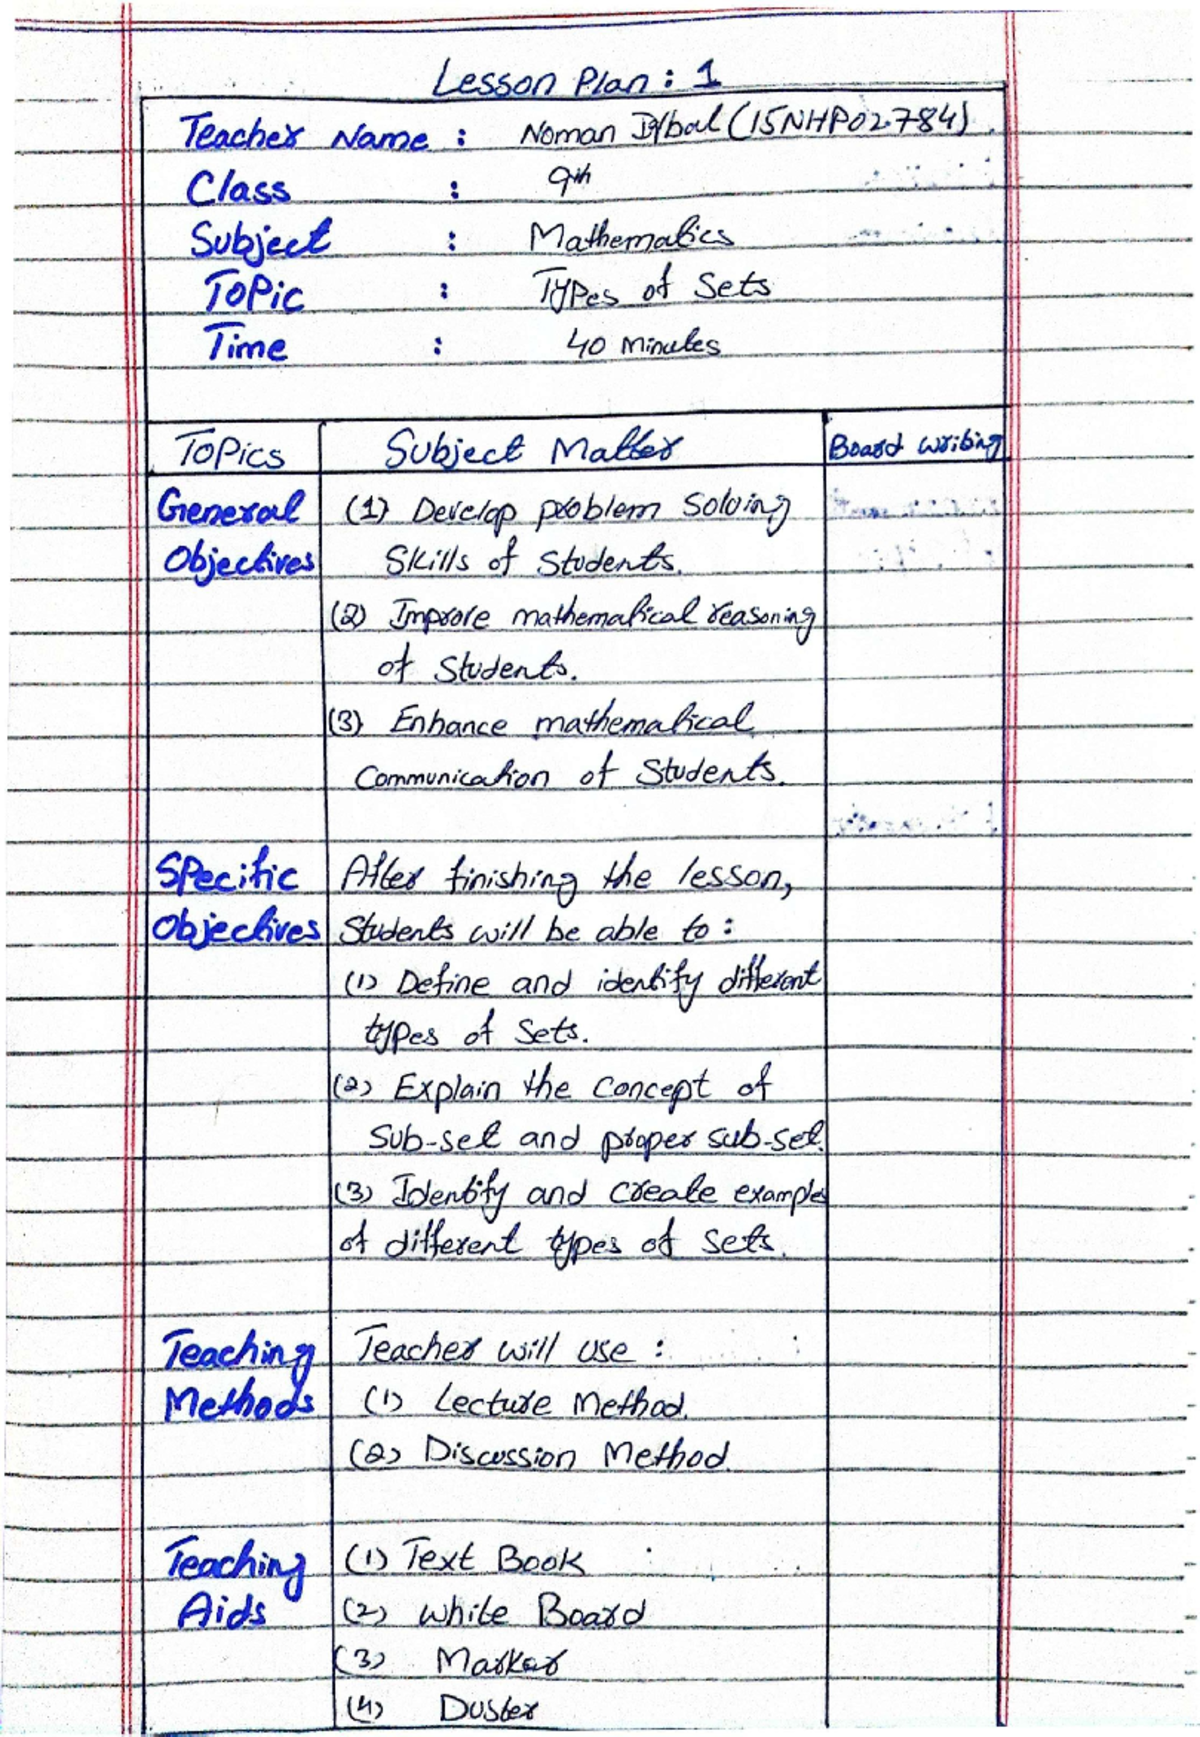 Lesson Plan : 1
Teacher Name : Noman Iqbal (15NHP02784)
Class : 9th
Subject : Mathematics
Topic : Types of Sets
Time : 40 Minutes
Topics Subject Matter Board writing
General (1) Develop problem solving
Objectives Skills of Students.
(2) Improve mathematical reasoning
of Students.
(3) Enhance mathematical
Communication of Students.
Specific After finishing the lesson,
Objectives Students will be able to :
(1) Define and identify different
types of Sets.
(2) Explain the concept of
Sub-set and proper sub-set.
(3) Identify and create example
of different types of sets.
Teaching Teacher will use :
Methods (1) Lecture Method.
(2) Discussion Method.
Teaching (1) Text Book
Aids (2) White Board
(3) Marker
(4) Duster